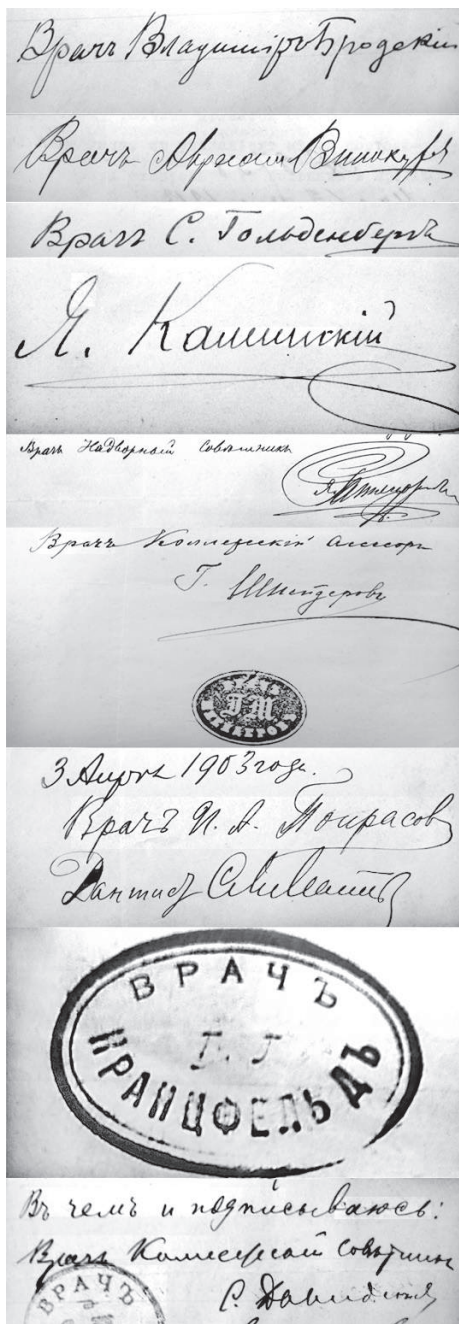 Врачъ Владиміръ Бродскій
Врачъ Авраам Винокуръ
Врачъ С. Гольденбергъ
Я. Каминскій
Врачъ Надворный Совѣтникъ
Врачъ Коллежскій ассесоръ
Г. Шнейдеровъ
ВРАЧЪ
Г Ш
3 Апрѣля 1903 года.
Врачъ И. А. Тоирасов
Дантистъ
ВРАЧЪ
Г. Г
КРАНЦФЕЛЬДЪ
Въ чемъ и подписываюсь:
Врачъ Коллежскій Совѣтникъ
ВРАЧЪ
С. Давидсонъ